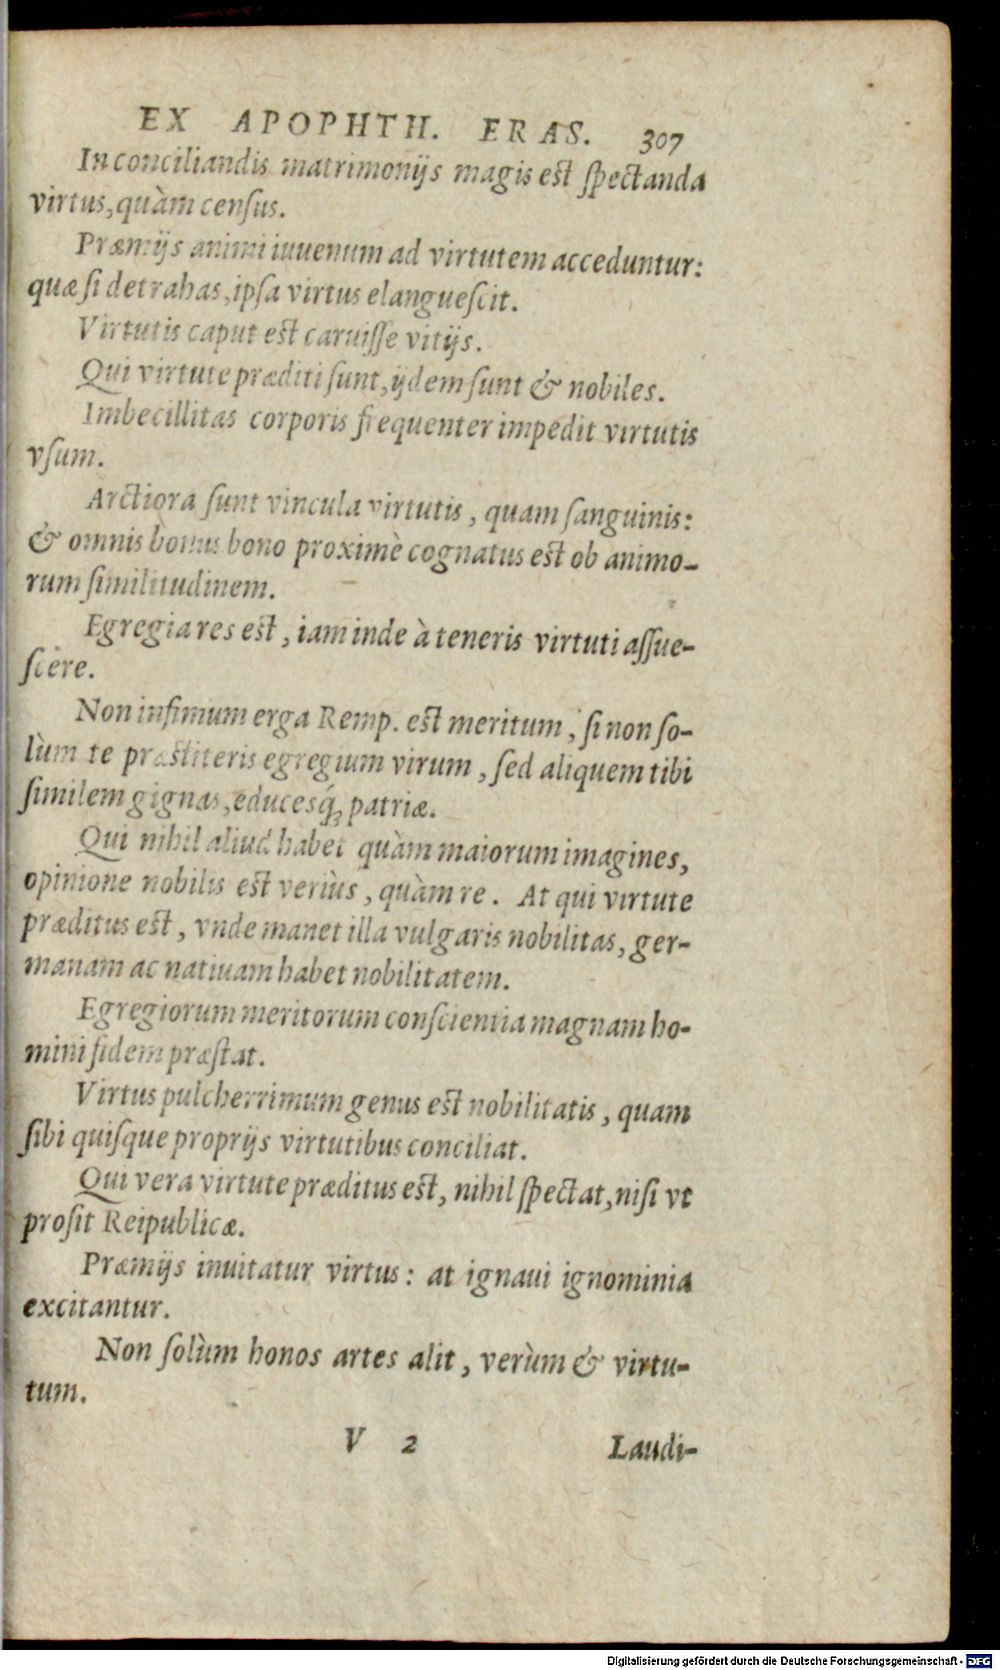 EX APOPHTH. ERAS. 307
In conciliandis matrimonijs magis est spectanda
virtus, quàm census.
Præmijs animi iuuenum ad virtutem acceduntur:
quæ si detrahas, ipsa virtus elanguescit.
Virtutis caput est caruisse vitijs.
Qui virtute præditi sunt, ijdem sunt & nobiles.
Imbecillitas corporis frequenter impedit virtutis
vsum.
Arctiora sunt vincula virtutis, quam sanguinis:
& omnis bonus bono proximè cognatus est ob animo-
rum similitudinem.
Egregia res est, iam inde à teneris virtuti assue-
scere.
Non infimum erga Remp. est meritum, si non so-
lùm te præstiteris egregium virum, sed aliquem tibi
similem gignas, educesq́; patriæ.
Qui nihil aliud habet quàm maiorum imagines,
opinione nobilis est veriùs, quàm re. At qui virtute
præditus est, vnde manet illa vulgaris nobilitas, ger-
manam ac natiuam habet nobilitatem.
Egregiorum meritorum conscientia magnam ho-
mini fidem præstat.
Virtus pulcherrimum genus est nobilitatis, quam
sibi quisque proprijs virtutibus conciliat.
Qui vera virtute præditus est, nihil spectat, nisi vt
prosit Reipublicæ.
Præmijs inuitatur virtus: at ignaui ignominia
excitantur.
Non solùm honos artes alit, verùm & virtu-
tum.
V 2 Laudi-
Digitalisierung gefördert durch die Deutsche Forschungsgemeinschaft - DFG